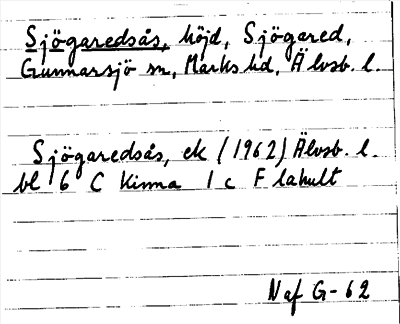 Sjögaredsås, höjd, Sjögared,
Gunnarsjö sn, Marks hd, Älvsb. l.
Sjögaredsås, ek (1962) Älvsb. l.
bl 6 C Kinna 1 c Flahult
Naf G-62